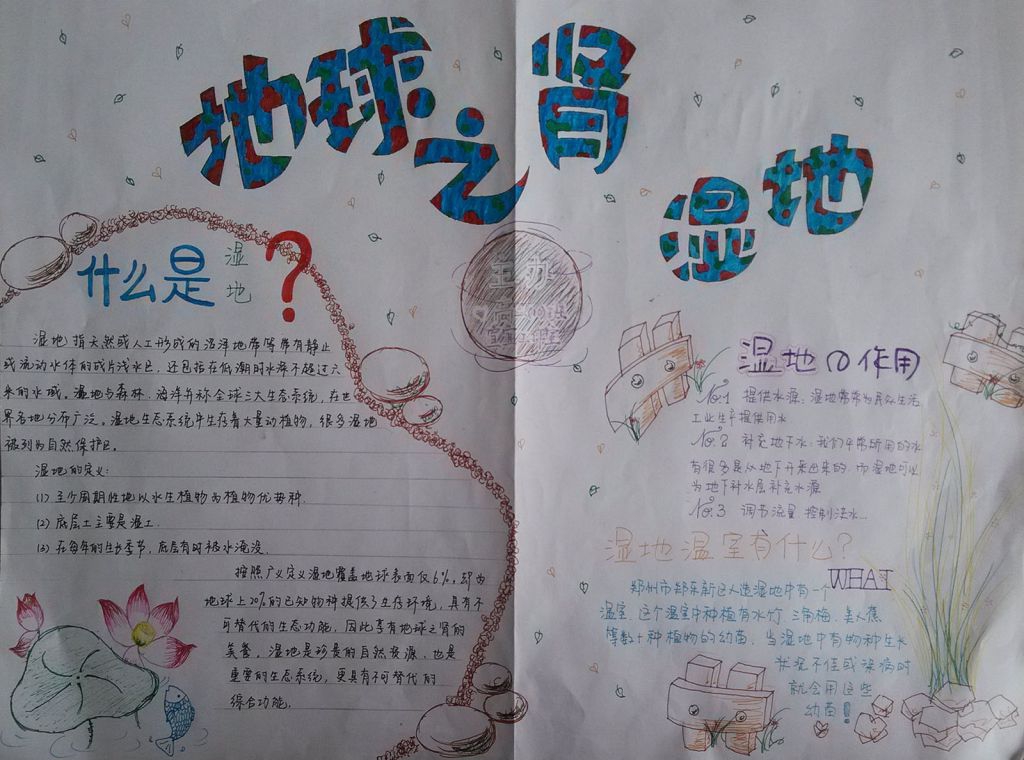 地球之肾
湿地
什么是湿地?
湿地指天然或人工形成的沼泽地带等带有静止
或流动水体的成片浅水区,还包括在低潮时水深不超过六
米的水域。湿地与森林、海洋并称全球三大生态系统,在世
界各地分布广泛。湿地生态系统中生存着大量动植物,很多湿地
被列为自然保护区。
湿地的定义:
(1) 至少周期性地以水生植物为植物优势种.
(2) 底层土主要是湿土.
(3) 在每年的生长季节,底层有时被水淹没.
按照广义定义湿地覆盖地球表面仅6%,却为
地球上20%的已知物种提供了生存环境,具有不
可替代的生态功能,因此享有地球之肾的
美誉。湿地是珍贵的自然资源,也是
重要的生态系统,更具有不可替代的
综合功能.
主办
湿地の作用
No.1 提供水源:湿地常常为居民生活
工业生产提供用水
No.2 补充地下水:我们平常所用的水
有很多是从地下开采出来的,而湿地可以
为地下补水层补充水源
No.3 调节流量 控制洪水...
湿地温室有什么?
WHAT
郑州市郑东新区人造湿地中有一个
温室,这个温室中种植有水竹,三角梅,美人蕉
等数十种植物的幼苗,当湿地中有物种生长
状况不佳或染病时
就会用这些
幼苗!